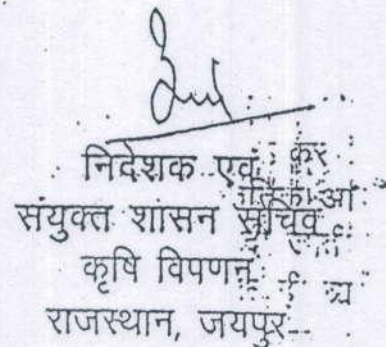 निदेशक एवं
संयुक्त शासन सचिव
कृषि विपणन
राजस्थान, जयपुर